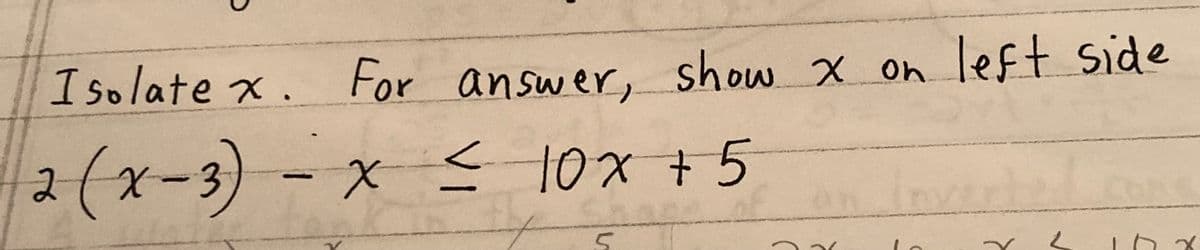 Isolate x. For answer, show x on left side
2(x-3) - x ≤ 10x + 5